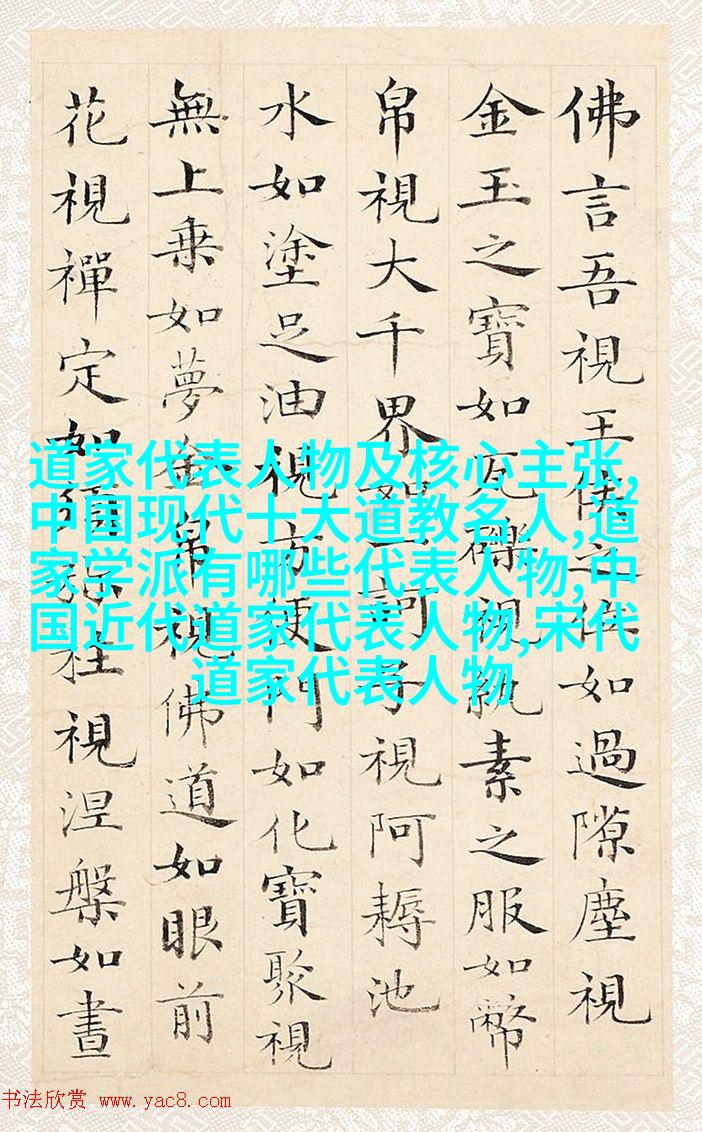 佛言吾視王侯之位如過隙塵視
金玉之寶如瓦礫視紈素之服如幣
帛視大千界如一訶子視阿耨池
水如塗足油視方便門如化寶聚視
無上乗如夢金帛視佛道如眼前
花視禪定如須彌柱視涅槃如晝
道家代表人物及核心主张,
中国现代十大道教名人,道
家学派有哪些代表人物,中
国近代道家代表人物,宋代
道家代表人物
书法欣赏 www.yac8.com